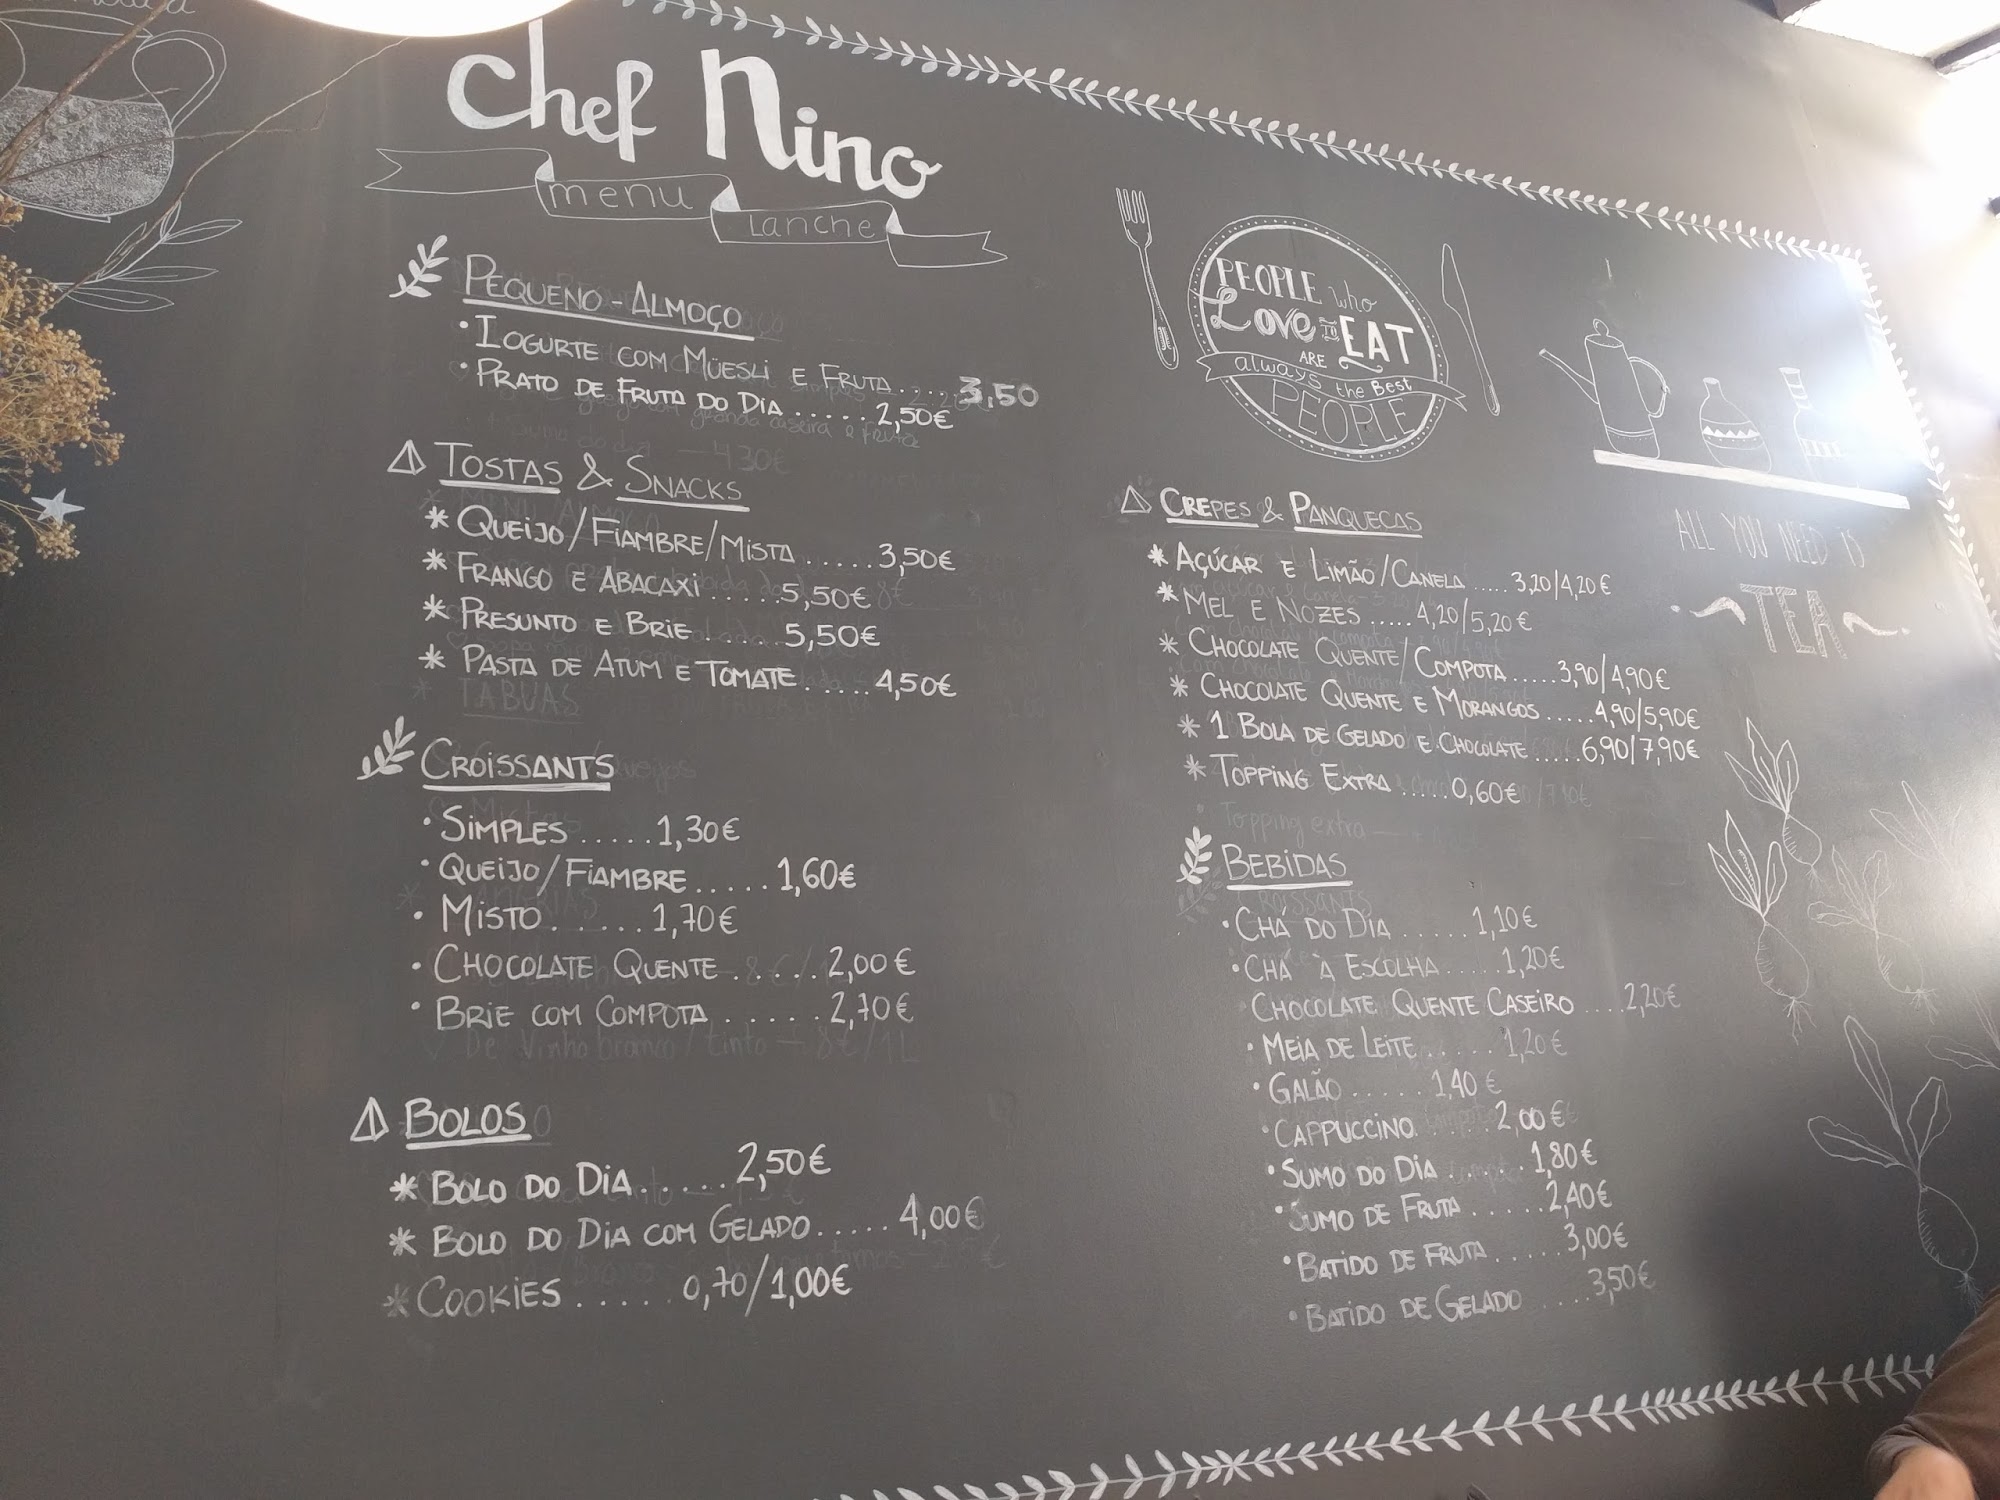 Chef Nino
menu
Lanche
PEQUENO-ALMOÇO
• IOGURTE COM MÜESLI E FRUTA....3,50
• PRATO DE FRUTA DO DIA.....2,50€
TOSTAS & SNACKS
* QUEIJO/FIAMBRE/MISTA.....3,50€
* FRANGO E ABACAXI.....5,50€
* PRESUNTO E BRIE.....5,50€
* PASTA DE ATUM E TOMATE.....4,50€
TABUAS
CROISSANTS
• SIMPLES.....1,30€
• QUEIJO/FIAMBRE.....1,60€
• MISTO.....1,70€
• CHOCOLATE QUENTE.....2,00€
• BRIE COM COMPOTA.....2,70€
De Vinho branco/tinto — 8€/1L
BOLOS
* BOLO DO DIA.....2,50€
* BOLO DO DIA COM GELADO.....4,00€
* COOKIES.....0,70/1,00€
PEOPLE who
Love TO EAT
ARE
always the Best
PEOPLE
CREPES & PANQUECAS
* AÇÚCAR E LIMÃO/CANELA.....3,20/4,20€
* MEL E NOZES.....4,20/5,20€
* CHOCOLATE QUENTE/COMPOTA.....3,90/4,90€
* CHOCOLATE QUENTE E MORANGOS.....4,90/5,90€
* 1 BOLA DE GELADO E CHOCOLATE.....6,90/7,90€
* TOPPING EXTRA.....0,60€
• Topping extra
BEBIDAS
• CHÁ DO DIA.....1,10€
• CHÁ À ESCOLHA.....1,20€
CHOCOLATE QUENTE CASEIRO....2,20€
• MEIA DE LEITE.....1,20€
• GALÃO.....1,40€
• CAPPUCCINO.....2,00€
• SUMO DO DIA.....1,80€
• SUMO DE FRUTA.....2,40€
• BATIDO DE FRUTA.....3,00€
• BATIDO DE GELADO.....3,50€
ALL YOU NEED IS
TEA